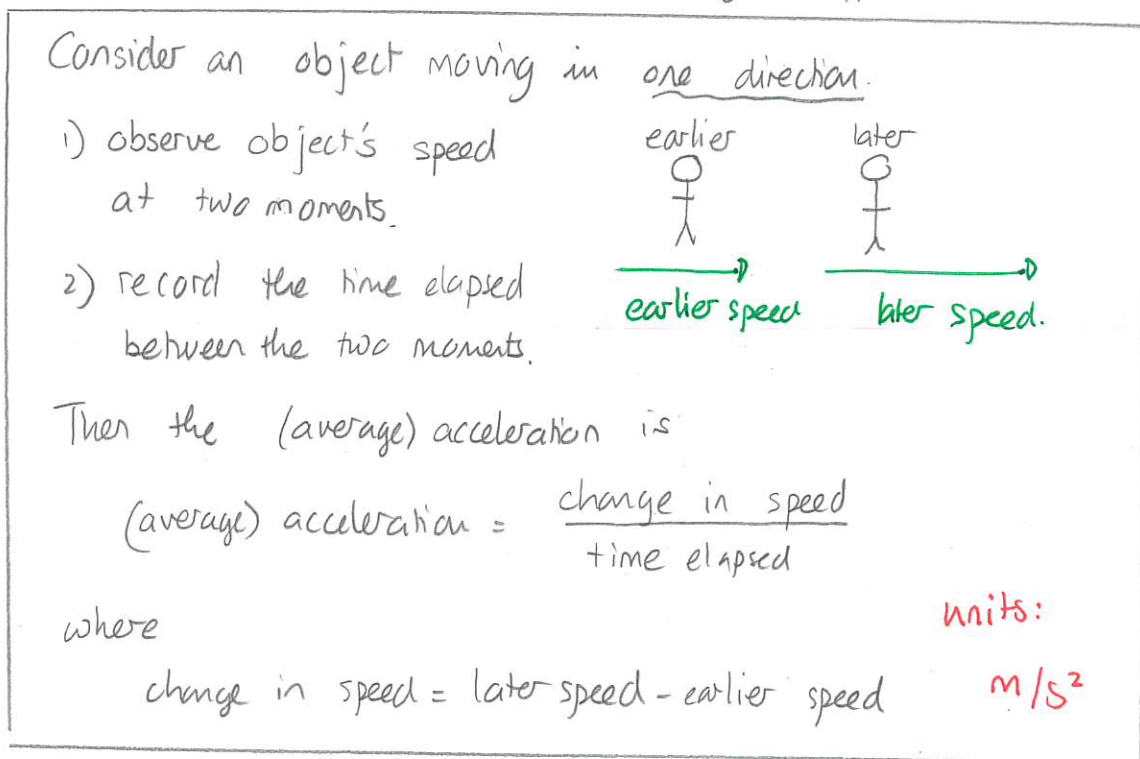 Consider an object moving in one direction.
1) observe object's speed
at two moments.
earlier later
2) record the time elapsed
between the two moments.
earlier speed later speed.
Then the (average) acceleration is
(average) acceleration = change in speed
time elapsed
where
units:
change in speed = later speed - earlier speed
m/s²